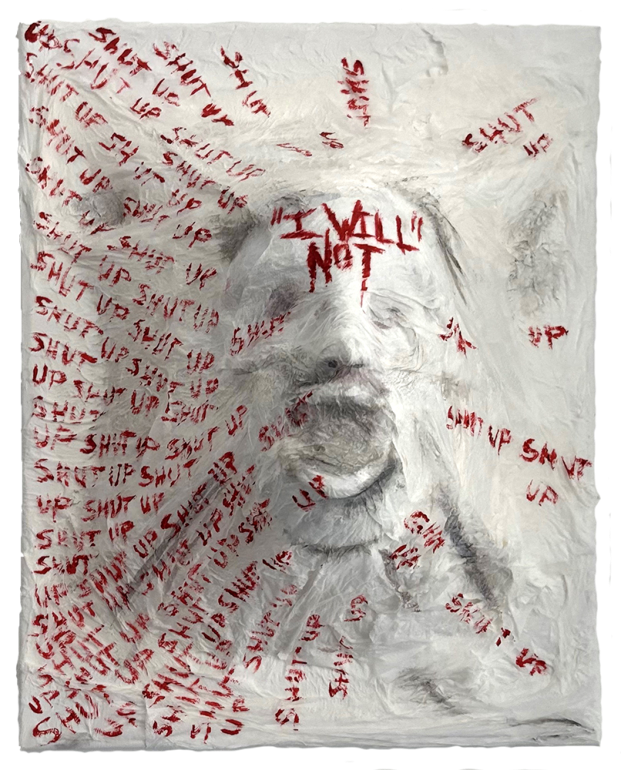 SHUT UP
SHUT UP
SHUT UP
SHUT
SHUT
UP
SHUT UP
SHUT UP
SHUT UP
SHUT UP
SHUT UP
SHUT UP
SHUT UP
SHUT UP
SHUT UP
"I WILL"
NOT
SHUT UP
SHUT UP
SHUT UP
SHUT UP
SHUT UP
SHUT UP
SHUT
UP
SHUT UP
SHUT UP
SHUT
UP SHUT UP SHUT
SHUT
UP SHUT UP SHUT UP
SHUT UP SHUT UP
SHUT UP SHUT
UP
UP SHUT UP
SHUT UP SHUT UP
UP
SHUT UP
SHUT UP
SHUT UP
SHUT UP
SHUT UP
SHUT UP
SHUT UP
SHUT UP